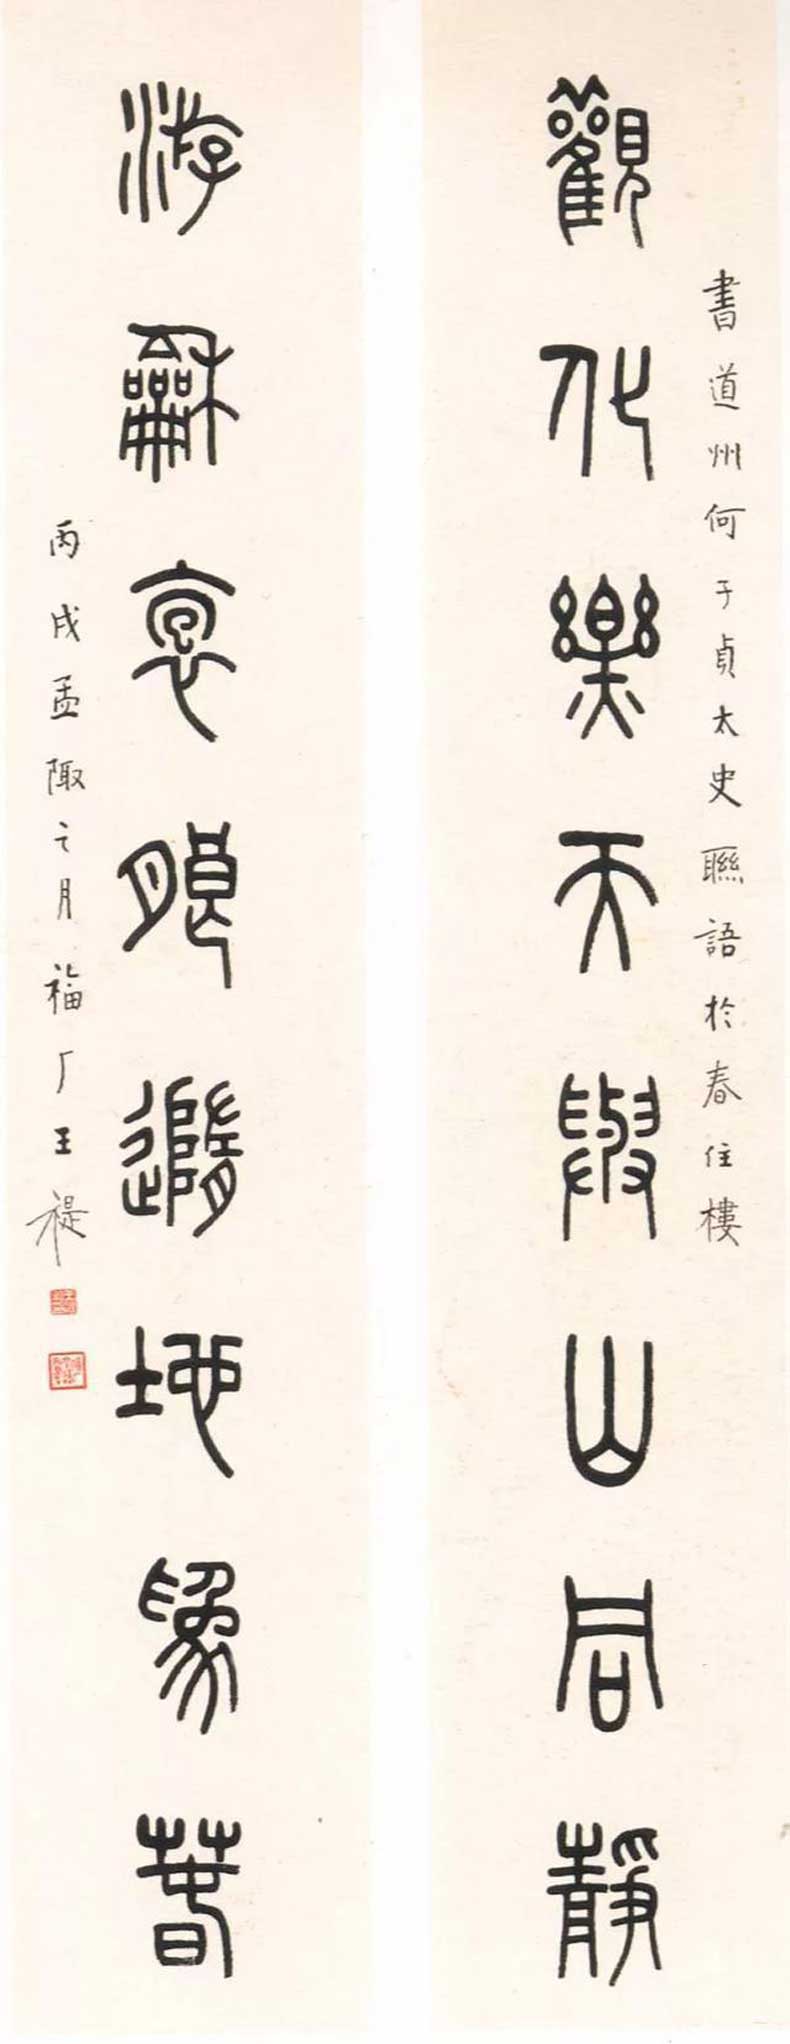 觀化樂天與山同靜
書道州何子貞太史聯語於春住樓
游龢褱朖隨地爲萅
丙戌孟陬之月福厂王禔